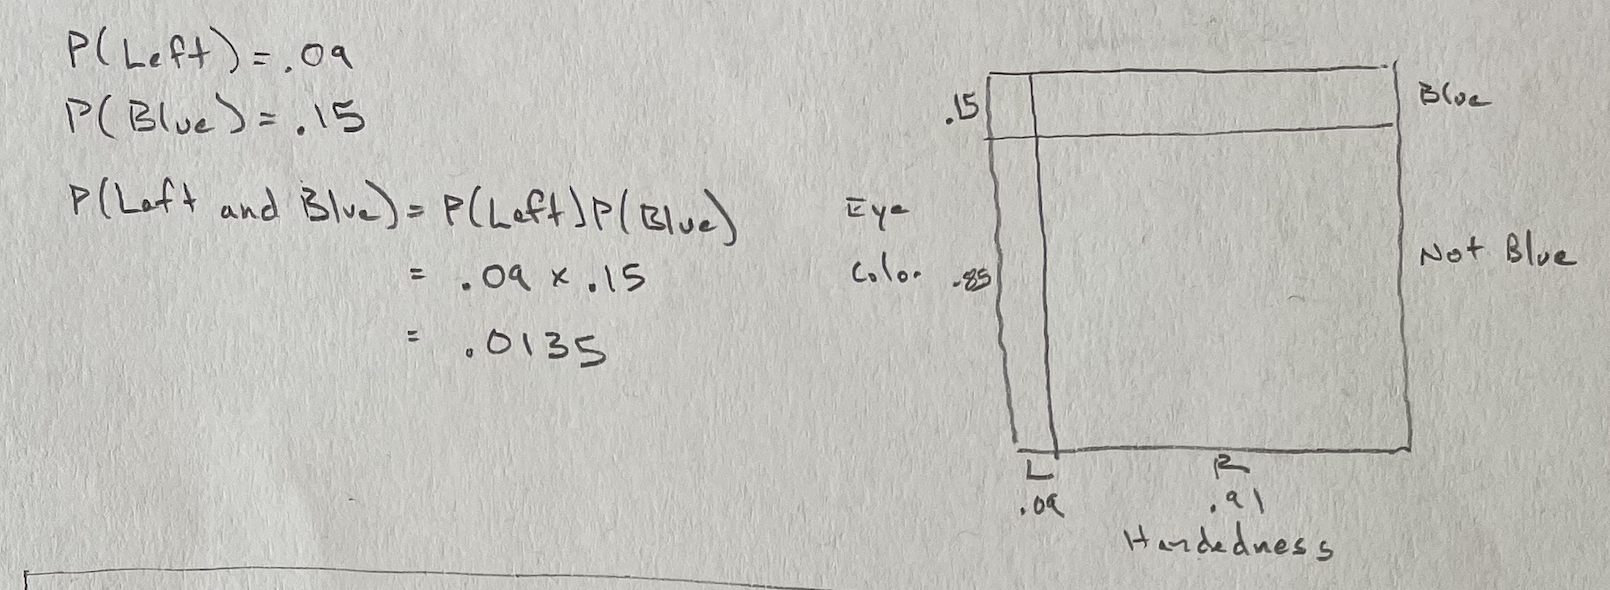 P(Left)=.09
P(Blue)=.15
P(Left and Blue)=P(Left)P(Blue)
= .09 x .15
= .0135
.15
Blue
Eye
Color
.85
Not Blue
L
R
.09
.91
Handedness